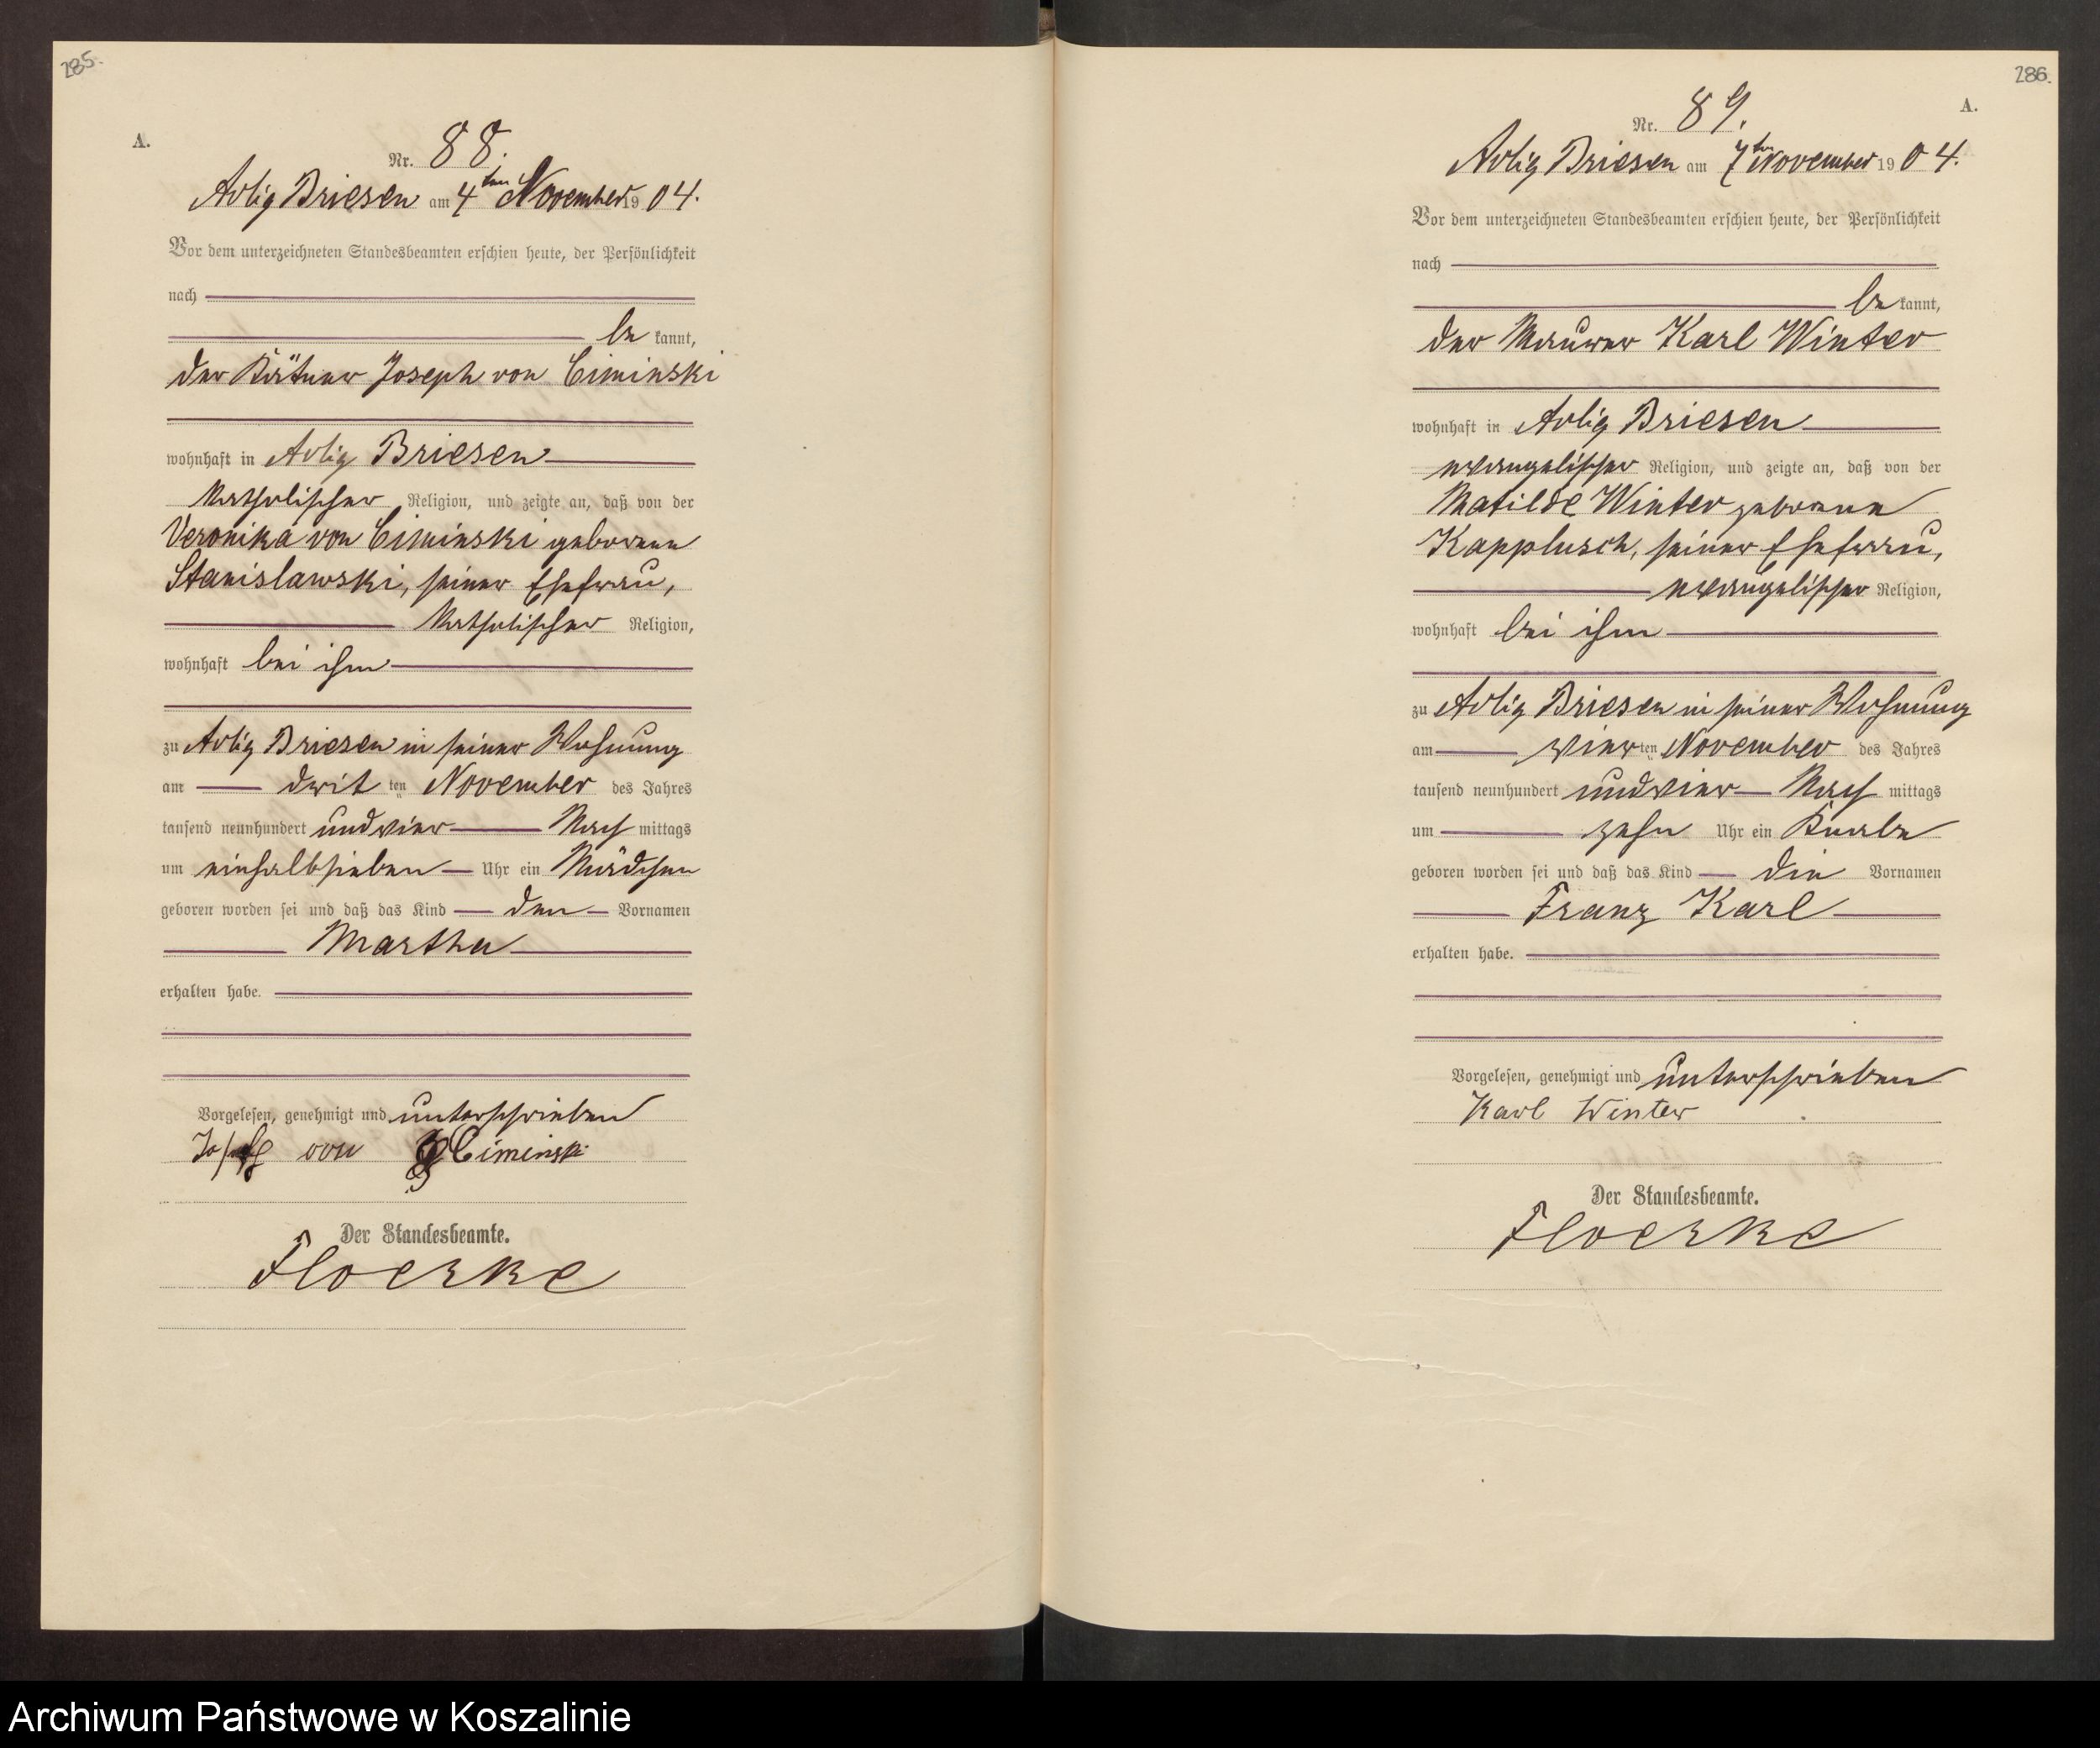 285.
A.
Nr. 88.
Adlig Briesen am 4ten November 1904.
Vor dem unterzeichneten Standesbeamten erschien heute, der Persönlichkeit
nach
be kannt,
der Kätner Joseph von Ciminski
wohnhaft in Adlig Briesen
katholischer Religion, und zeigte an, daß von der
Veronika von Ciminski geborene
Stanislawski, seiner Ehefrau,
katholischer Religion,
wohnhaft bei ihm
zu Adlig Briesen in seiner Wohnung
am drit ten November des Jahres
tausend neunhundert undvier Nach mittags
um einhalbsieben Uhr ein Mädchen
geboren worden sei und daß das Kind den Vornamen
Martha
erhalten habe.
Vorgelesen, genehmigt und unterschrieben
Joseph von Ciminski
Der Standesbeamte.
Floerke
286.
A.
Nr. 89.
Adlig Briesen am 7ten November 1904.
Vor dem unterzeichneten Standesbeamten erschien heute, der Persönlichkeit
nach
be kannt,
der Maurer Karl Winter
wohnhaft in Adlig Briesen
evangelischer Religion, und zeigte an, daß von der
Matilde Winter geborene
Kapplusch, seiner Ehefrau,
evangelischer Religion,
wohnhaft bei ihm
zu Adlig Briesen in seiner Wohnung
am vier ten November des Jahres
tausend neunhundert undvier Nach mittags
um zehn Uhr ein Knabe
geboren worden sei und daß das Kind die Vornamen
Franz Karl
erhalten habe.
Vorgelesen, genehmigt und unterschrieben
Karl Winter
Der Standesbeamte.
Floerke
Archiwum Państwowe w Koszalinie